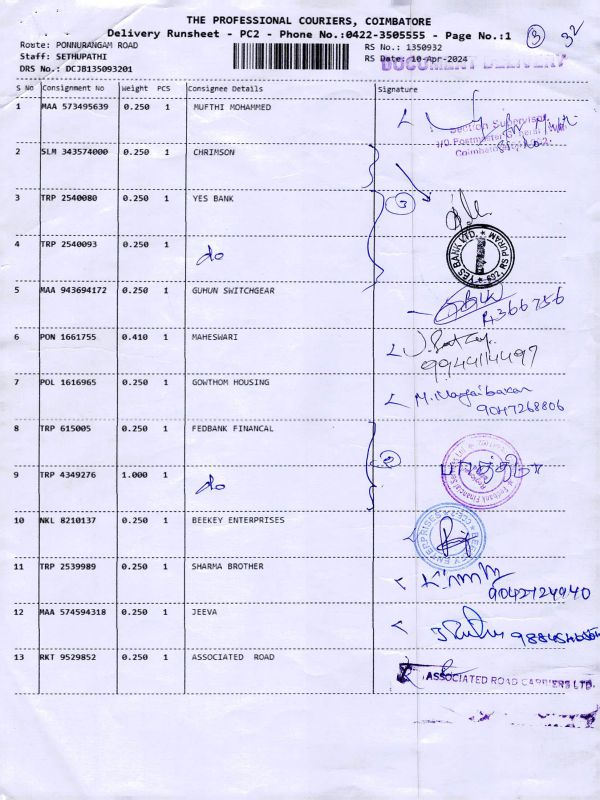 THE PROFESSIONAL COURIERS, COIMBATORE
Delivery Runsheet - PC2 - Phone No.:0422-3505555 - Page No.:1
3 32
Route: PONNURANGAM ROAD
RS No.: 1350932
Staff: SETHUPATHI
RS Date: 10-Apr-2024
DOCUMENT DELIVERY
DRS No.: DCJB135093201
S No Consignment No Weight PCS Consignee Details Signature
1 MAA 573495639 0.250 1 MUFTHI MOHAMMED
Section Supervisor
2 SLM 343574000 0.250 1 CHRIMSON
3 TRP 2540080 0.250 1 YES BANK
3
YES BANK LTD. ★ R.S PURAM
4 TRP 2540093 0.250 1 do
5 MAA 943694172 0.250 1 GUHUN SWITCHGEAR
366756
6 PON 1661755 0.410 1 MAHESWARI
9944114497
7 POL 1616965 0.250 1 GOWTHOM HOUSING
9047268806
8 TRP 615005 0.250 1 FEDBANK FINANCAL
2
9 TRP 4349276 1.000 1 do
10 NKL 8210137 0.250 1 BEEKEY ENTERPRISES
11 TRP 2539989 0.250 1 SHARMA BROTHER
9042124940
12 MAA 574594318 0.250 1 JEEVA
13 RKT 9529852 0.250 1 ASSOCIATED ROAD
ASSOCIATED ROAD CARRIERS LTD.